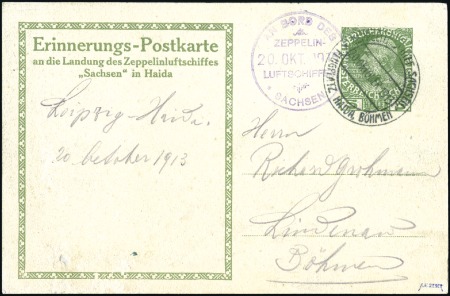 Erinnerungs-Postkarte
an die Landung des Zeppelinluftschiffes
„Sachsen” in Haida
Leipzig-Haida.
20 October 1913
AN BORD DES
ZEPPELIN-
20. OKT.
LUFTSCHIFFES
SACHSEN
Herrn
Richard Grohmann
Lindenau
Böhmen